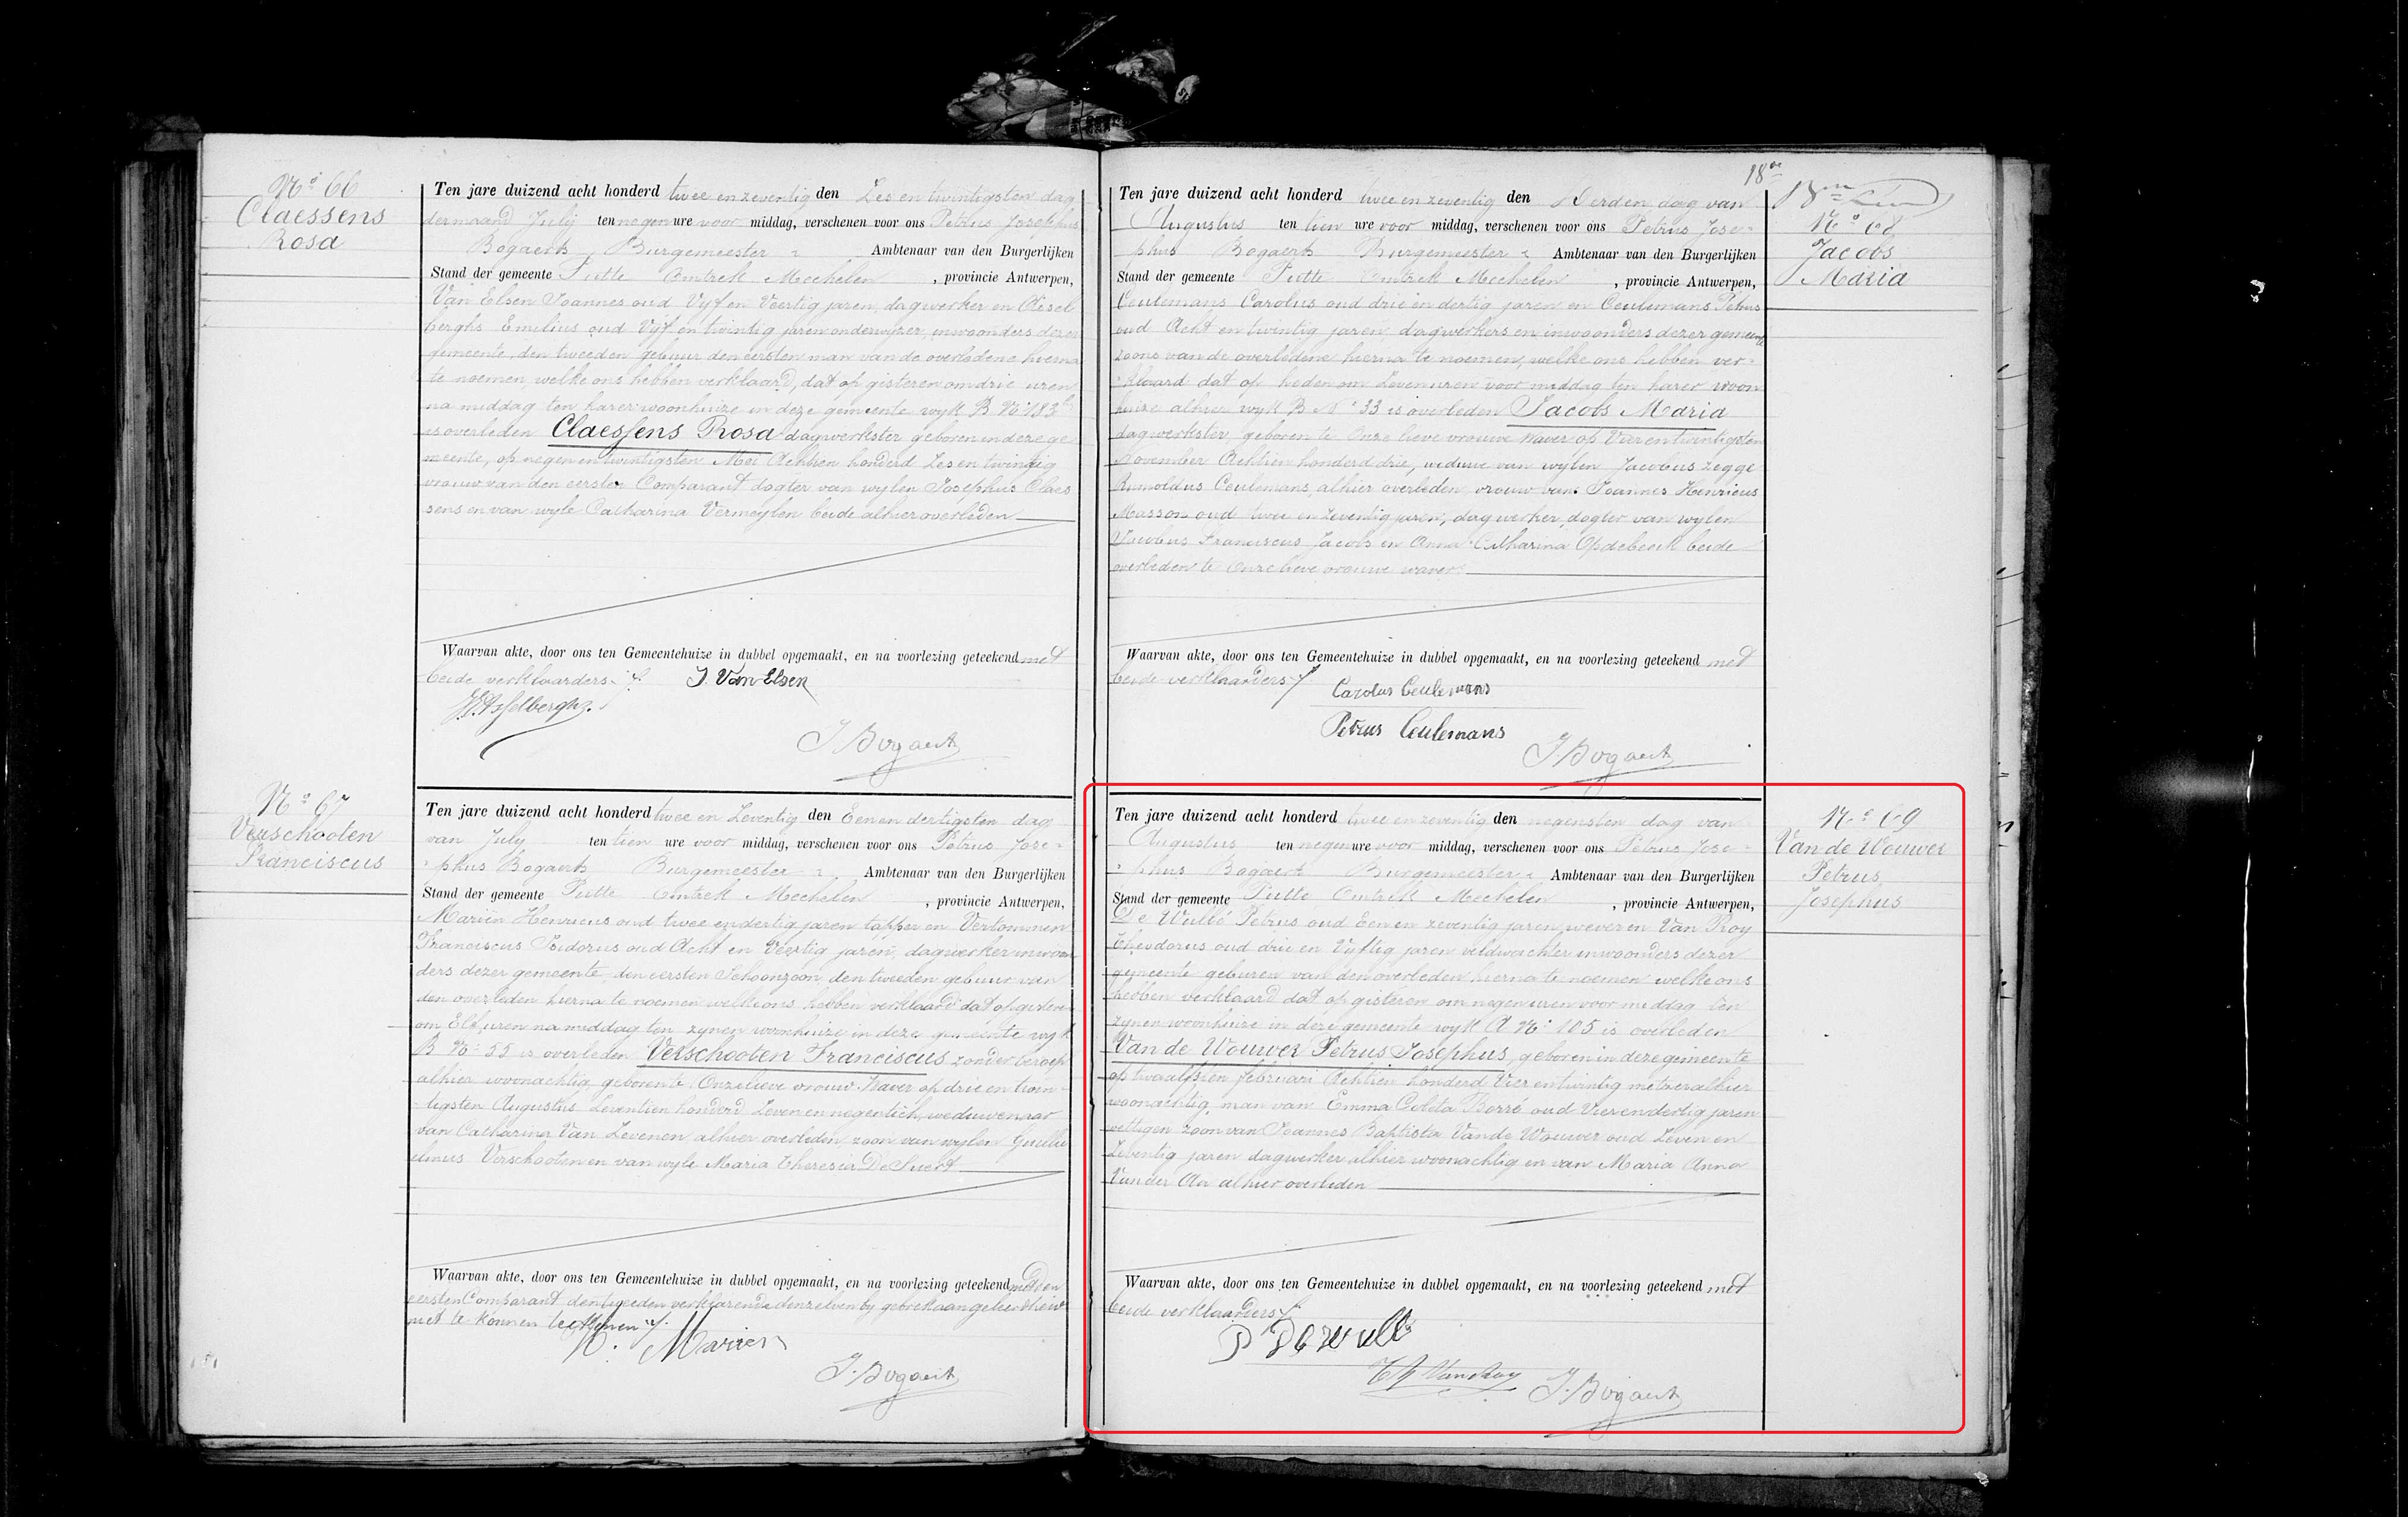 Nº 66
Claessens
Rosa
Ten jare duizend acht honderd twee en zeventig den Zes en twintigsten dag
der maand July ten negen ure voor middag, verschenen voor ons Petrus Josephus
Bogaerts Burgemeester Ambtenaar van den Burgerlijken
Stand der gemeente Putte Omtrek Mechelen , provincie Antwerpen,
Van Elsen Joannes oud Vyf en Veertig jaren, dagwerker en Assel
berghs Emilius oud Vyf en twintig jaren onderwyzer, inwoonders dezer
gemeente, den tweeden gebuur den eersten man van de overledene hierna
te noemen, welke ons hebben verklaard, dat op gisteren om drie uren
na middag ten harer woonhuize in deze gemeente wyk B Nº 183
is overleden Claessens Rosa dagwerkster geboren in deze ge
meente, op negen en twintigsten Mei Achtien honderd Zes en twintig
vrouw van den eersten Comparant dogter van wylen Josephus Claes
sens en van wyle Catharina Vermeylen beide alhier overleden
Waarvan akte, door ons ten Gemeentehuize in dubbel opgemaakt, en na voorlezing geteekend met
beide verklaarders J. Van Elsen
E. Asselberghs.
J Bogaerts
Nº 67
Verschooten
Franciscus
Ten jare duizend acht honderd twee en Zeventig den Een en dertigsten dag
van July ten tien ure voor middag, verschenen voor ons Petrus Jose-
phus Bogaerts Burgemeester Ambtenaar van den Burgerlijken
Stand der gemeente Putte Omtrek Mechelen , provincie Antwerpen,
Mariën Henricus oud twee en dertig jaren tapper en Vertommen
Franciscus Isidorus oud Acht en Veertig jaren, dagwerker inwoon
ders dezer gemeente, den eersten Schoonzoon, den tweeden gebuur van
den overleden hierna te noemen welke ons hebben verklaard dat op gisteren
om Elf uren na middag ten zynen woonhuize in deze gemeente wyk
B Nº 55 is overleden Verschooten Franciscus zonder beroep
alhier woonachtig geboren te Onze lieve vrouw Waver op drie en twin-
tigsten Augustus Zeventien honderd Zeven en negentich, weduwenaar
van Catharina Van Zevenen alhier overleden, zoon van wylen Guilli
elmus Verschooten en van wyle Maria Theresia De Suert
Waarvan akte, door ons ten Gemeentehuize in dubbel opgemaakt, en na voorlezing geteekend met den
eersten Comparant den tweeden verklarende denzelven by gebrek aan geleerdheid
niet te konnen teekenen
H. Marien
J. Bogaerts
18de
Ten jare duizend acht honderd twee en zeventig den derden dag van
Augustus ten tien ure voor middag, verschenen voor ons Petrus Jose-
phus Bogaerts Burgemeester Ambtenaar van den Burgerlijken
Stand der gemeente Putte Omtrek Mechelen , provincie Antwerpen,
Ceulemans Carolus oud drie en dertig jaren en Ceulemans Petrus
oud Acht en twintig jaren, dagwerkers en inwoonders dezer gemeente
zoons van de overledene hierna te noemen, welke ons hebben ver-
klaard dat op heden om Zeven uren voor middag ten harer woon
huize alhier wyk B Nº 33 is overleden Jacobs Maria
dagwerkster, geboren te Onze lieve vrouwe waver op Vier en twintigsten
November Achtien honderd drie, weduwe van wylen Jacobus zegge
Rumoldus Ceulemans, alhier overleden, vrouw van Joannes Henricus
Masson oud twee en zeventig jaren, dagwerker, dogter van wylen
Jacobus Franciscus Jacobs en Anna Catharina Opdebeeck beide
overleden te Onze lieve vrouwe waver
Waarvan akte, door ons ten Gemeentehuize in dubbel opgemaakt, en na voorlezing geteekend met
beide verklaarders
Carolus Ceulemans
Petrus Ceulemans
J Bogaerts
Nº 68
Jacobs
Maria
Ten jare duizend acht honderd twee en zeventig den negensten dag van
Augustus ten negen ure voor middag, verschenen voor ons Petrus Jose-
phus Bogaerts Burgemeester Ambtenaar van den Burgerlijken
Stand der gemeente Putte Omtrek Mechelen , provincie Antwerpen,
De Wulbé Petrus oud Een en zeventig jaren, wever en Van Roy
Theodorus oud drie en Vyftig jaren veldwachter inwoonders dezer
gemeente geburen van den overleden hierna te noemen welke ons
hebben verklaard dat op gisteren om negen uren voor middag ten
zynen woonhuize in deze gemeente wyk A Nº 105 is overleden
Van de Wouwer Petrus Josephus, geboren in deze gemeente
op twaalfsten februari Achtien honderd Vier en twintig metser alhier
woonachtig, man van Emma Coleta Borré oud Vier en dertig jaren
wettigen zoon van Joannes Baptista Van de Wouwer oud Zeven en
Zeventig jaren dagwerker alhier woonachtig en van Maria Anna
Van der Aa alhier overleden
Waarvan akte, door ons ten Gemeentehuize in dubbel opgemaakt, en na voorlezing geteekend met
beide verklaarders
P De Wulb
Th Van Roy J. Bogaerts
Nº 69
Van de Wouwer
Petrus
Josephus